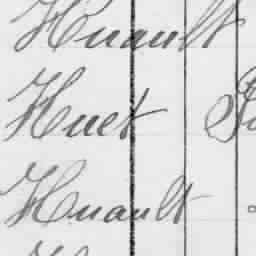 Huault
Huet
Huault